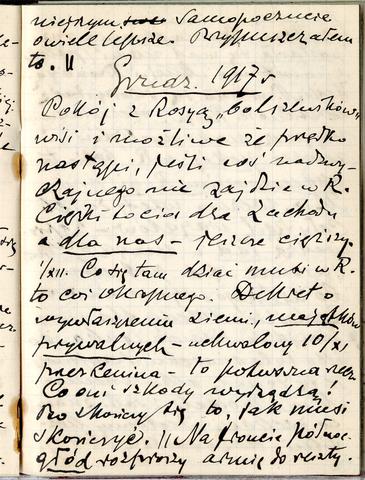 niejszym Samopoczucie
o wiele lepsze. Przypuszczałem
to. ||
Grudz. 1917 r
Pokój z Rosyą „bolszewików"
wisi i możliwe że prędko
nastąpi, jeśli coś nadzwy-
czajnego nie zajdzie w R.
Ciężki to cios dla Zachodu
a dla nas – jeszcze cięższy.
1/XII. Co się tam dziać musi w R.
to coś okropnego. Dekret o
wywłaszczeniu ziemi, majątków
prywatnych – uchwalony 10/XI
przez Lenina – to potworna rzecz
Co oni szkody wyrządzą!
No skończy się to, jak musi
skończyć. || Na froncie północ.
głód rozproszy armię do reszty.